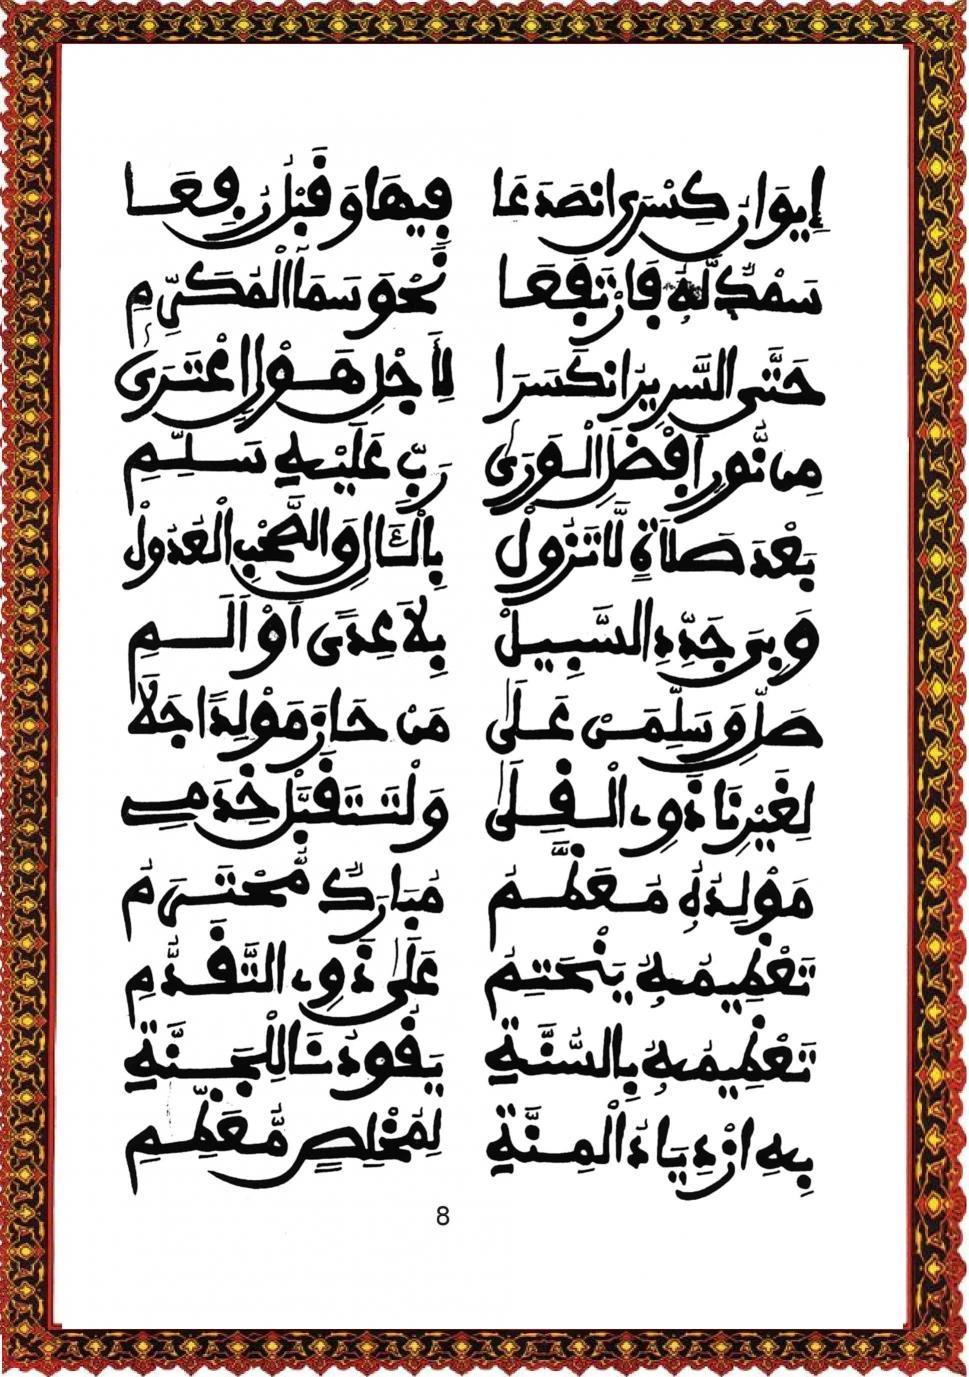 إِيوَانُ كِسْرَى انصَدَعَا فِيهَا وَقَبْلُ رُفِعَا
سَمْكٌ لَّهُ فَارْتَفَعَا نَحْوَ سَمَا الْمُكَرَّمِ
حَتَّى السَّرِيرُ انكَسَرَا لِأَجْلِ هَوْلٍ اعْتَرَى
مِن نُّورِ أَفْضَلِ الْوَرَى رَبِّ عَلَيْهِ سَلِّمِ
بَعْدَ صَلَاةٍ لَّا تَزُولْ بِالْآلِ وَالصَّحْبِ الْعُدُولْ
وَبِيَ جَدِّدِ السَّبِيلْ بِلَا عِدًى أَوْ أَلَمِ
صَلِّ وَسَلِّمَنْ عَلَى مَنْ حَازَ مَوْلِدًا جَلَا
لِغَيْرِنَا ذَوِي الْقِلَى وَلْتَتَقَبَّلْ خِدَمِي
مَوْلِدُهُ مُعَظَّمُ مُبَارَكٌ مُّحْتَرَمُ
تَعْظِيمُهُ يَنْحَتِمُ عَلَى ذَوِي التَّقَدُّمِ
تَعْظِيمُهُ بِالسُّنَّةِ يَقُودُنَا لِلْجَنَّةِ
بِهِ ازْدِيَادُ الْمِنَّةِ لِمُخْلِصٍ مُّعَظِّمِ
8